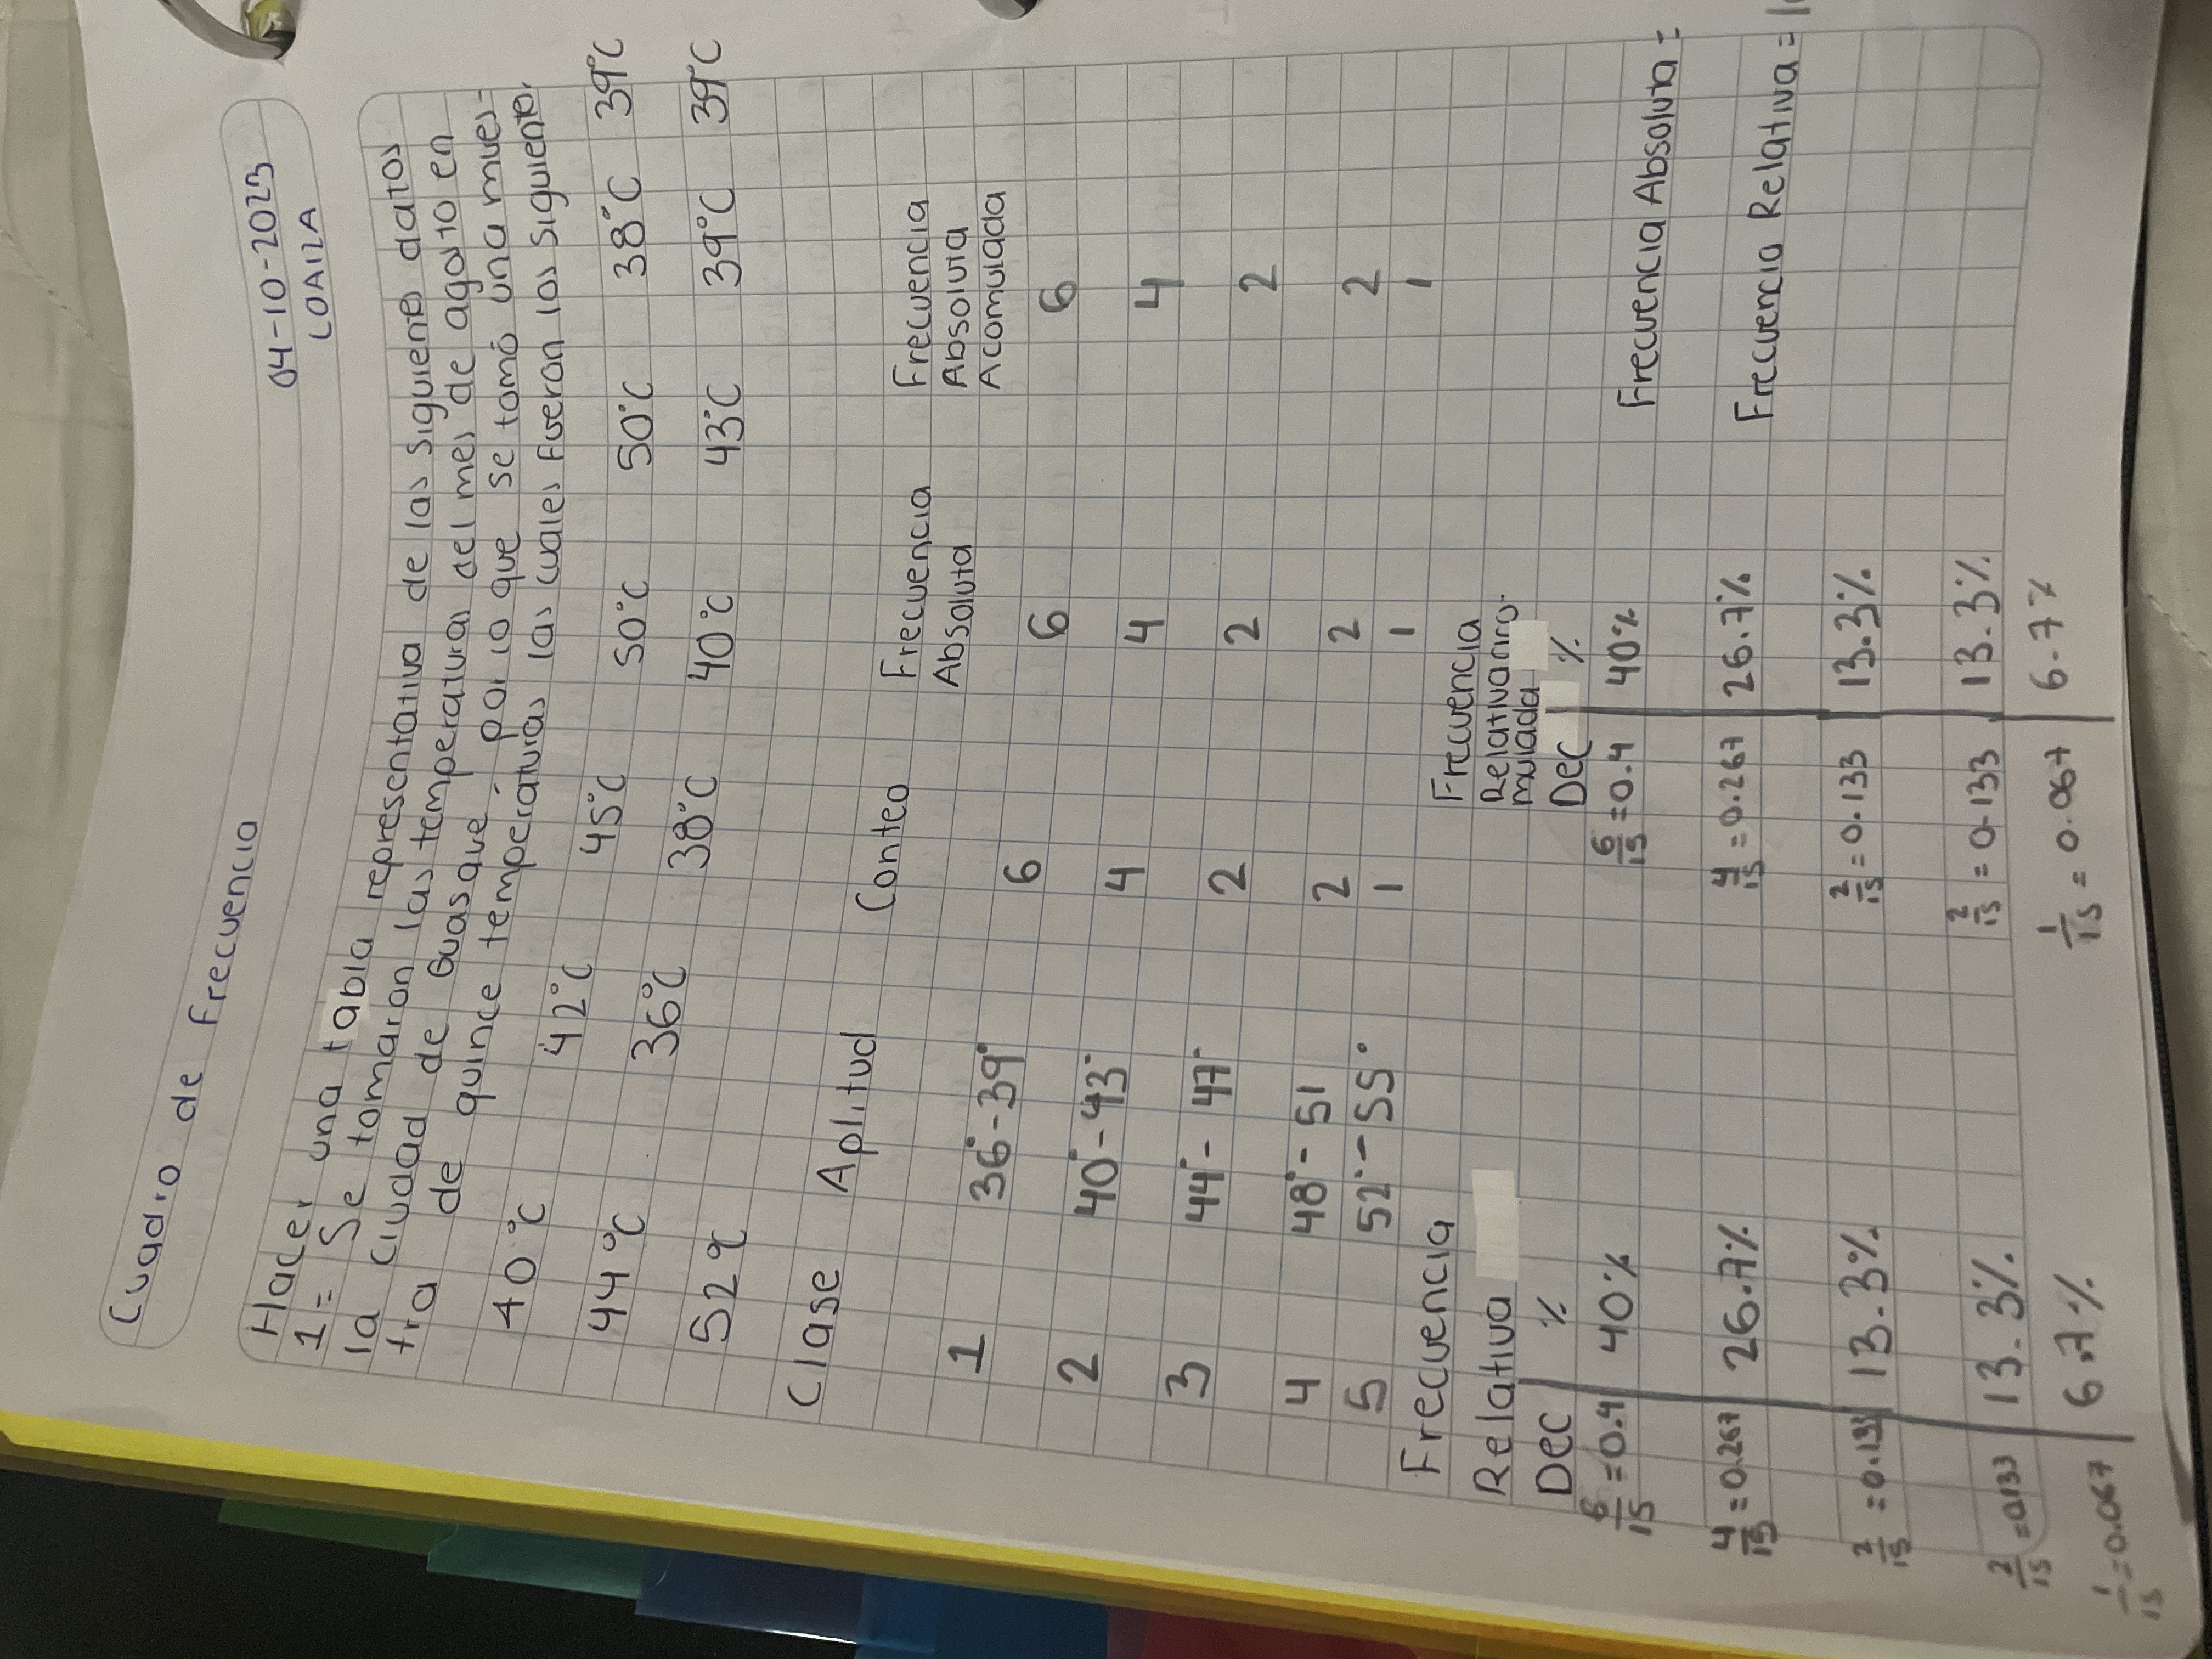 Cuadro de Frecuencia
04-10-2023
LOAIZA
Hacer una tabla representativa de las siguientes datos
1= Se tomaron las temperaturas del mes de agosto en
la ciudad de Guasave, por lo que se tomó una mues-
tra de quince temperaturas las cuales fueron las siguientes.
40°C 42°C 45°C 50°C 50°C 38°C 39°C
44°C 36°C 38°C 40°C 43°C 39°C 39°C
52°C
Clase Aplitud Conteo Frecuencia Absoluta Frecuencia Absoluta Acomulada
1 36°-39° 6 6 6
2 40°-43° 4 4 4
3 44°-47° 2 2 2
4 48°-51 2 2 2
5 52°-55° 1 1 1
Frecuencia Relativa
DEC %
6/15=0.4 40%
4/15=0.267 26.7%
2/15=0.133 13.3%
2/15=0133 13.3%
1/15=0.067 6.7%
Frecuencia
Relativa
mulada
DEC %
6/15=0.4 40%
4/15=0.267 26.7%
2/15=0.133 13.3%
2/15=0.133 13.3%
1/15=0.067 6.7%
Frecuencia Absoluta =
Frecuencia Relativa =